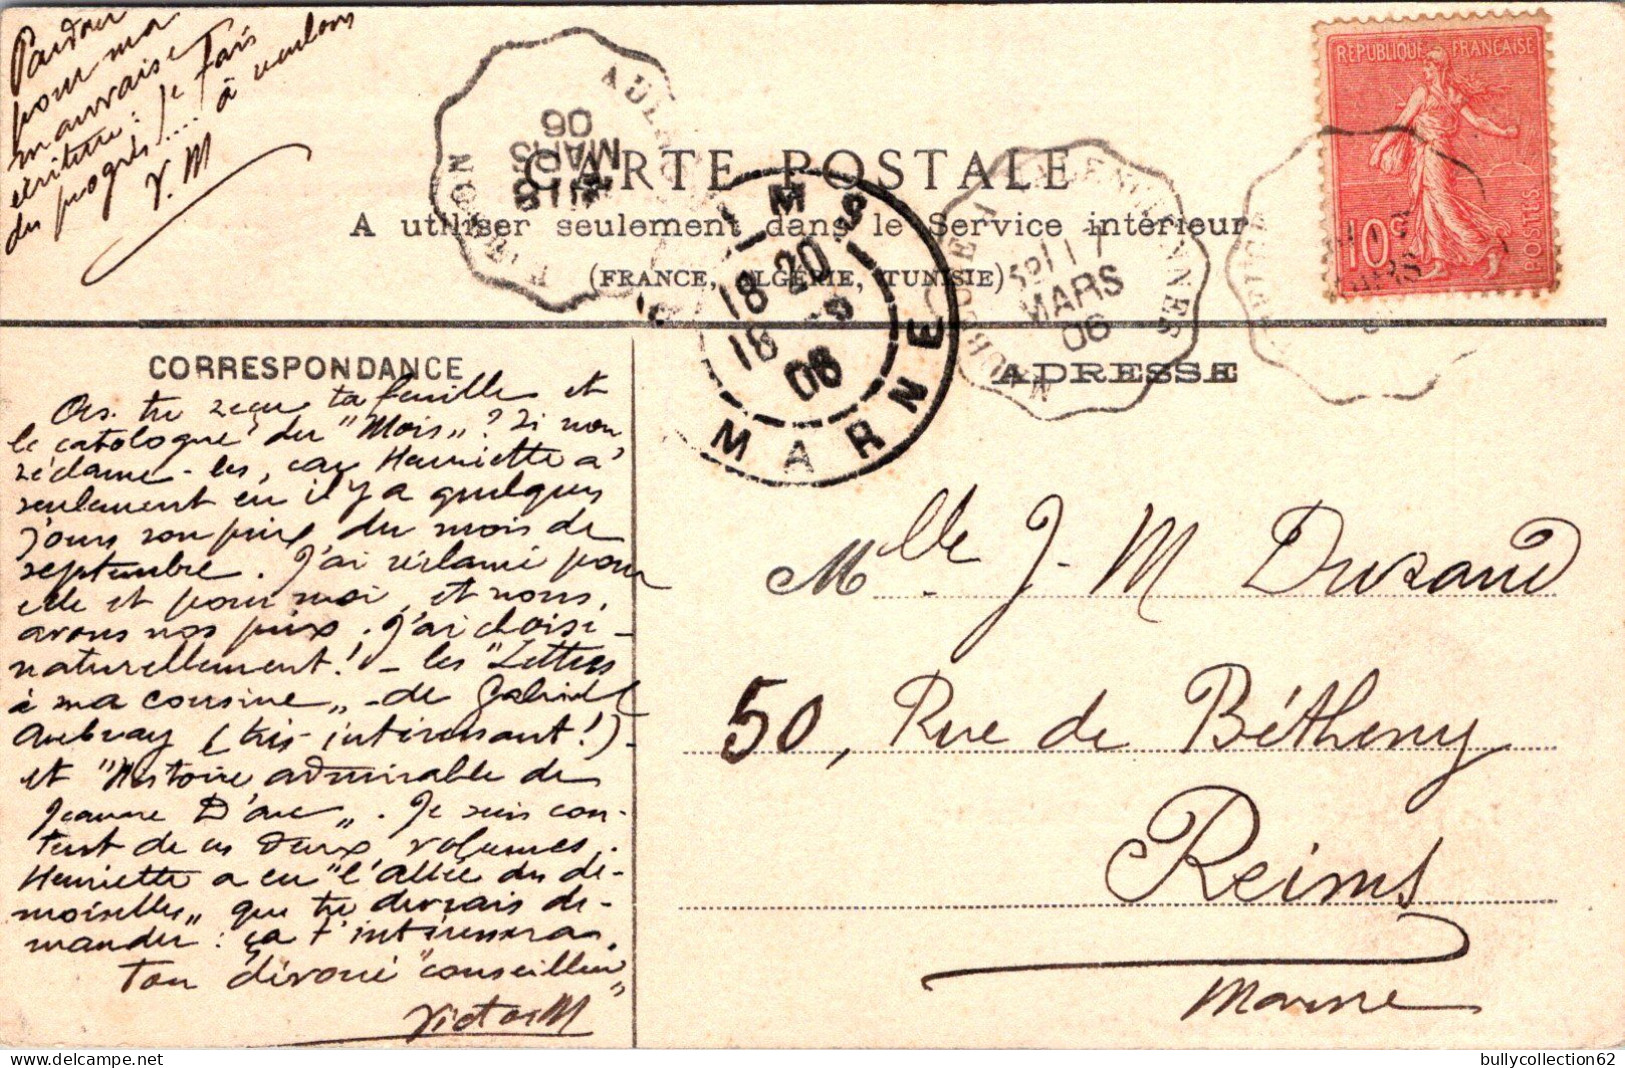 Pardon
pour ma
mauvaise
écriture : je fais
du progrès .... à reculons
V. M
CARTE POSTALE
A utiliser seulement dans le Service intérieur
(FRANCE, ALGÉRIE, TUNISIE)
REPUBLIQUE FRANÇAISE
10c
POSTES
MARS
06
18 20
18 -3
06
MARNE
17
MARS
06
CORRESPONDANCE
ADRESSE
As-tu reçu ta feuille et
le catologue du "Mois" ? Si non
réclame-les, car Henriette a
seulement eu il y a quelques
jours son prix du mois de
septembre. J'ai réclamé pour
elle et pour moi, et nous
avons nos prix. J'ai choisi -
naturellement! - les "Lettres
à ma cousine" - de Gabriel
Aubray (très-intéressant!) -
et "Histoire admirable de
Jeanne D'arc". Je suis con-
tent de ces deux volumes.
Henriette a eu "l'Allée des de-
moiselles" que tu devrais de-
mander : ça t'intéressera.
Ton dévoué "conseiller"
Victor M
Mlle J. M Durand
50, Rue de Bétheny
Reims
Marne
bullycollection62